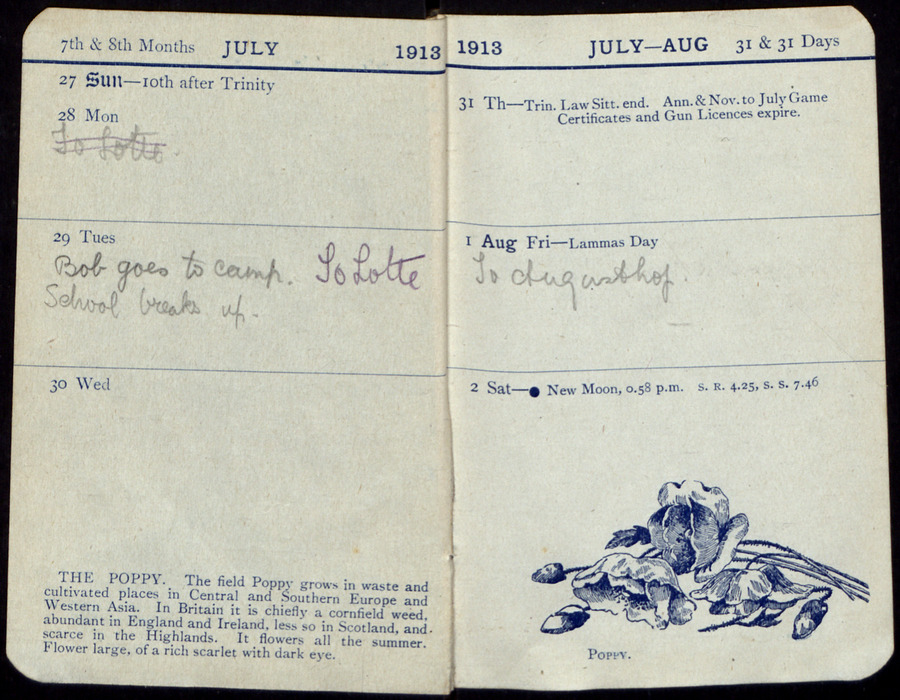 7th & 8th Months JULY 1913
27 Sun—10th after Trinity
28 Mon
To Lotte
29 Tues
Bob goes to camp. To Lotte
School breaks up.
30 Wed
THE POPPY. The field Poppy grows in waste and
cultivated places in Central and Southern Europe and
Western Asia. In Britain it is chiefly a cornfield weed,
abundant in England and Ireland, less so in Scotland, and
scarce in the Highlands. It flowers all the summer.
Flower large, of a rich scarlet with dark eye.
1913 JULY—AUG 31 & 31 Days
31 Th—Trin. Law Sitt. end. Ann. & Nov. to July Game
Certificates and Gun Licences expire.
1 Aug Fri—Lammas Day
To Augusthof
2 Sat—● New Moon, 0.58 p.m. S. R. 4.25, S. S. 7.46
POPPY.